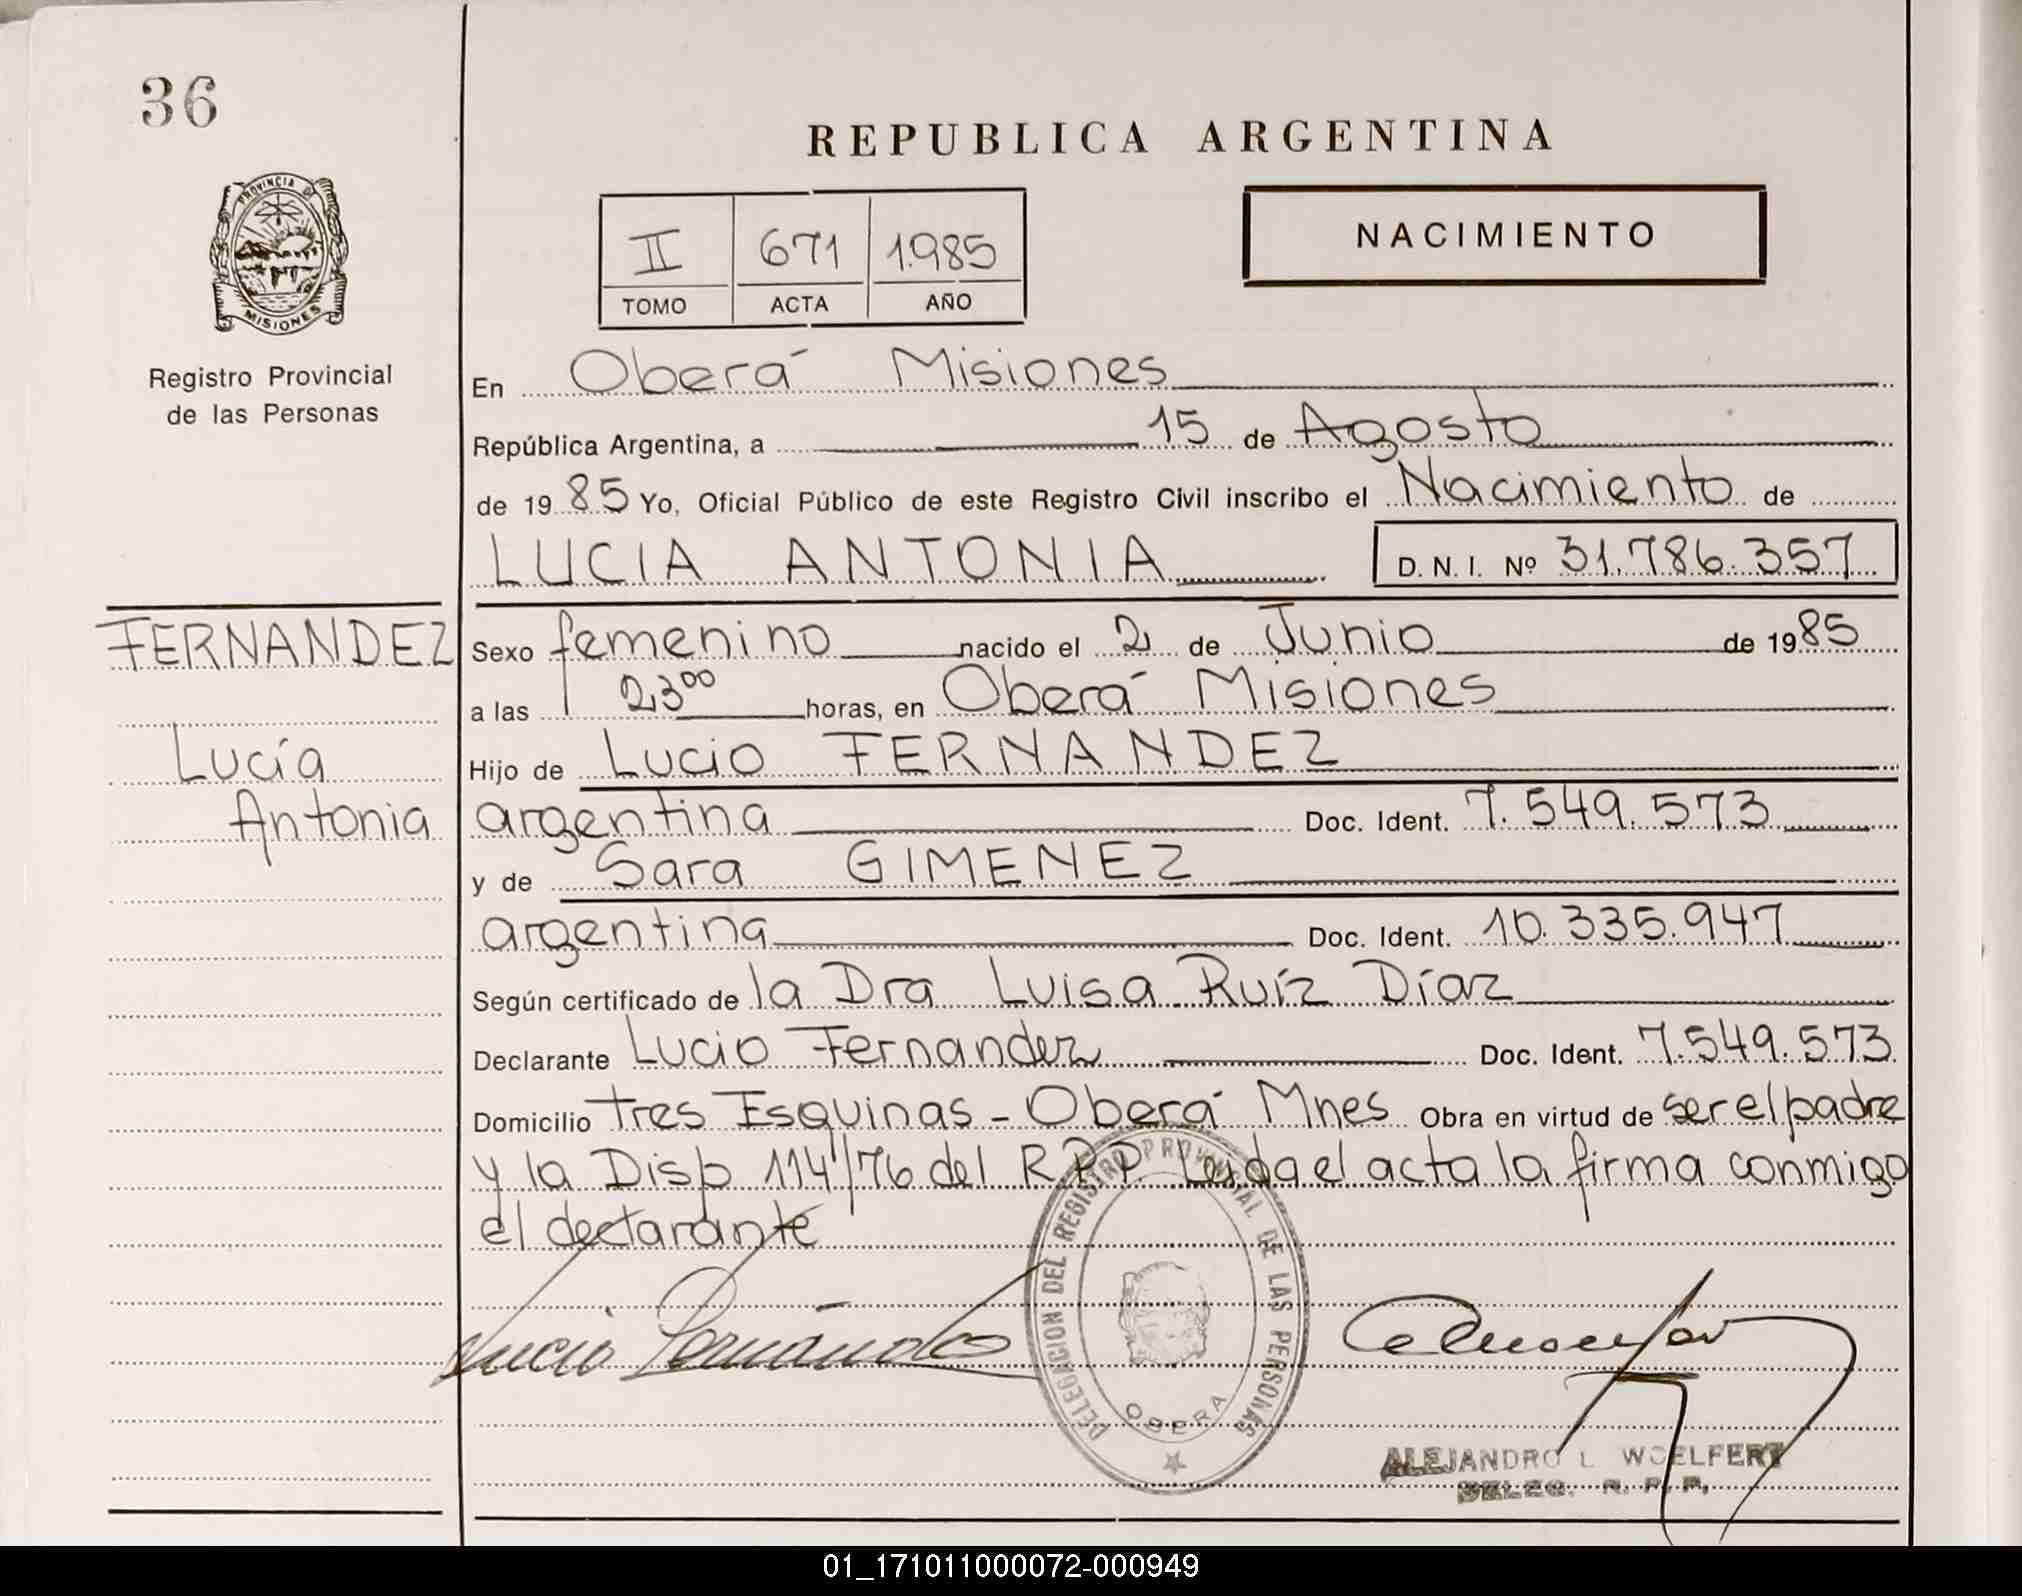 36
REPUBLICA ARGENTINA
PROVINCIA DE
MISIONES
Registro Provincial
de las Personas
II 671 1.985
TOMO ACTA AÑO
NACIMIENTO
En Oberá Misiones
República Argentina, a 15 de Agosto
de 19 85 Yo, Oficial Público de este Registro Civil inscribo el Nacimiento de
LUCIA ANTONIA D. N. I. Nº 31.786.357
FERNANDEZ
Lucía
Antonia
Sexo femenino nacido el 2 de Junio de 19 85
a las 23 00 horas, en Oberá Misiones
Hijo de Lucio FERNANDEZ
argentina Doc. Ident. 7.549.573
y de Sara GIMENEZ
argentina Doc. Ident. 10.335.947
Según certificado de la Dra Luisa Ruíz Díaz
Declarante Lucio Fernandez Doc. Ident. 7.549.573
Domicilio Tres Esquinas - Oberá Mnes Obra en virtud de ser el padre
y la Disp 114/76 del R.P.P. Leída el acta la firma conmigo
el declarante
Lucio Fernández
DELEGACION DEL REGISTRO PROVINCIAL DE LAS PERSONAS
OBERA
ALEJANDRO L WOELFERT
DELEG. R. P. P.
01_171011000072-000949